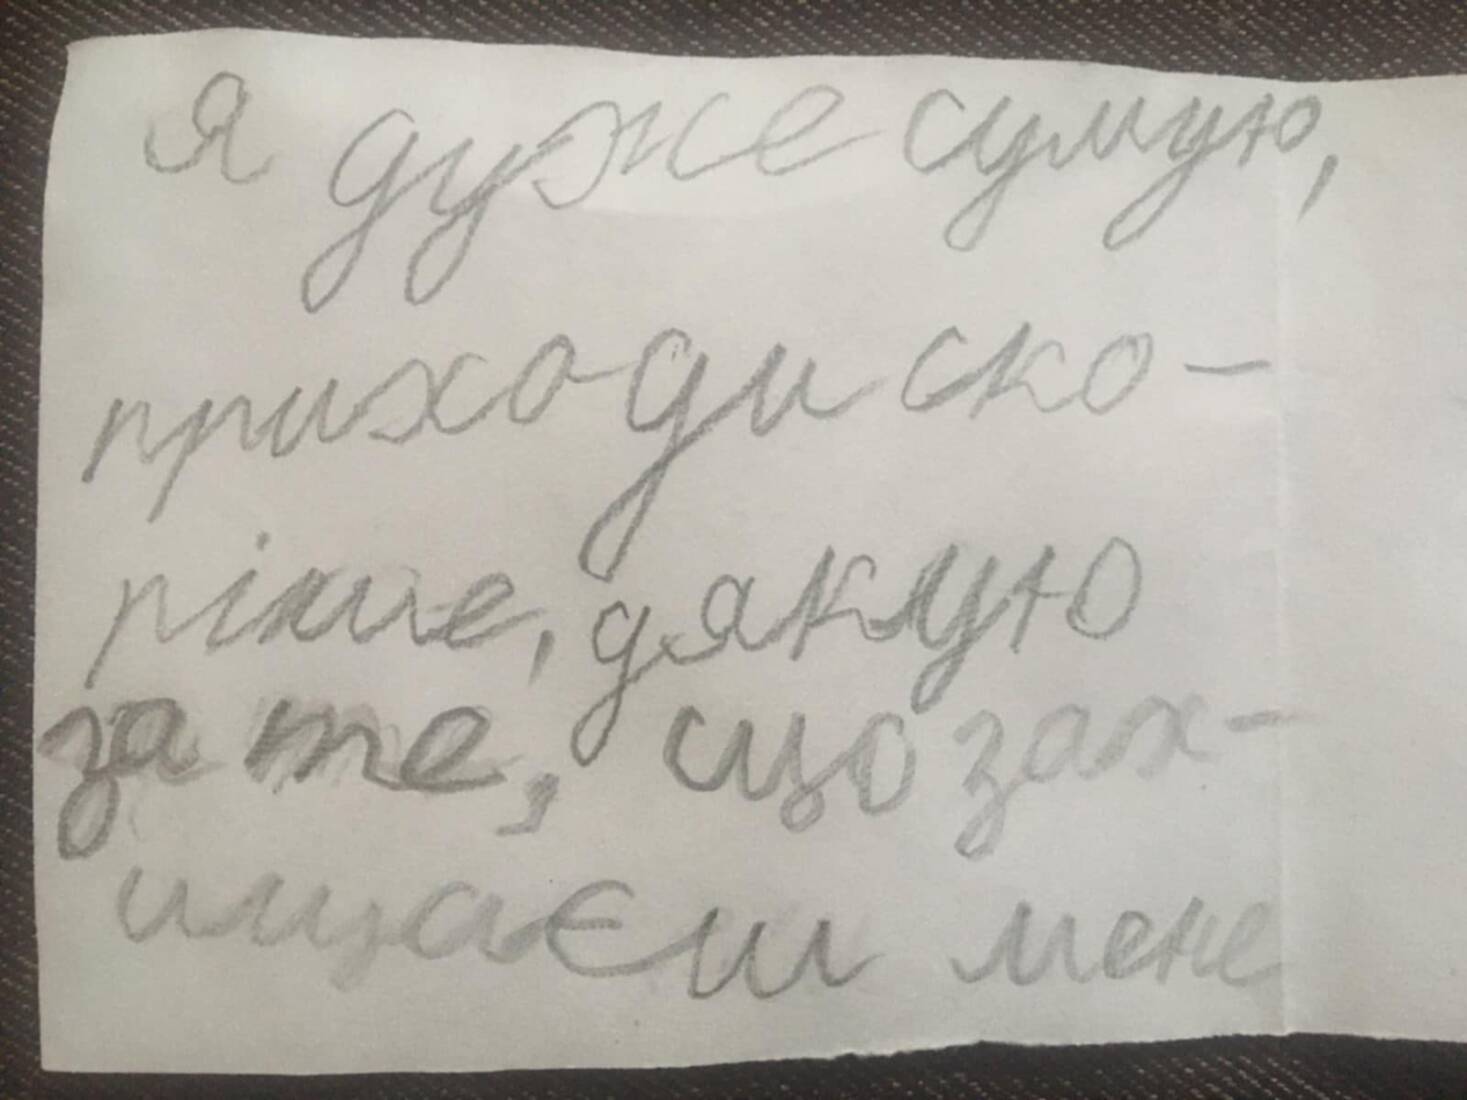 я дуже сумую,
приходи ско-
ріше, дякую
за те, що зах-
ищаєш мене